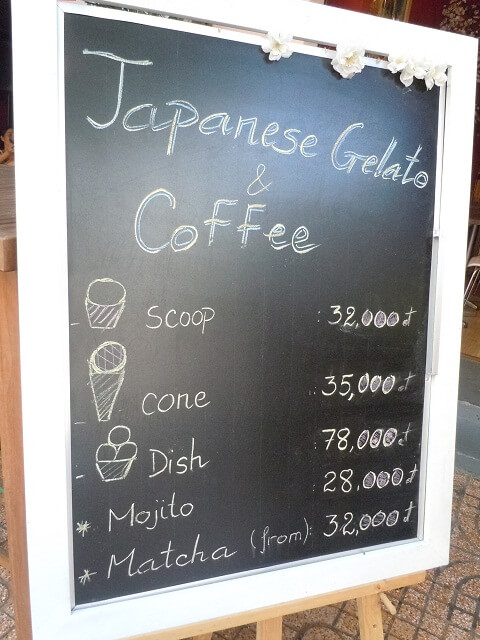 Japanese Gelato
&
Coffee
- scoop : 32,000 đ
- cone : 35,000 đ
- Dish : 78,000 đ
* Mojito : 28,000 đ
* Matcha (from): 32,000 đ